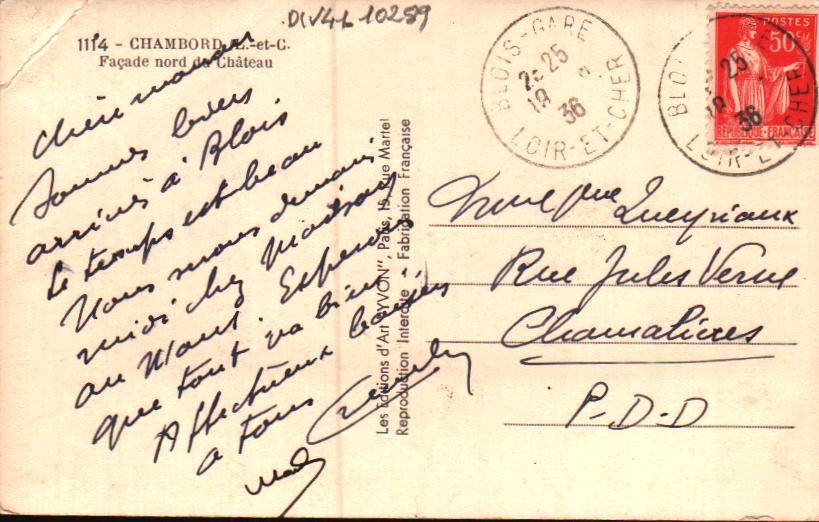 DIV4L 10289
1114 - CHAMBORD (L.-et-C.
Façade nord du Château
BLOIS-GARE
25
18 2
36
LOIR-ET-CHER
POSTES
50c
REPUBLIQUE-FRANÇAISE
BLOIS-GARE
25
18
36
LOIR-ET-CHER
Chère maman
Sommes bien
arrivés à Blois
le temps est beau
Nous irons demain
midi chez
au Mans. Espérons
que tout va bien
Affectueux baisers
a tous
Les Editions d'Art "YVON", Paris, 15, Rue Martel
Reproduction Interdite - Fabrication Française
Queyriaux
Rue Jules Verne
Chamalières
P-D-D